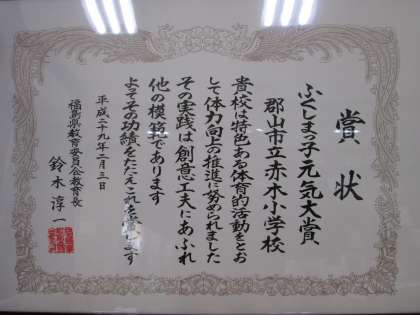 賞状
ふくしまっ子元気大賞
郡山市立赤木小学校
貴校は特色ある体育的活動をとお
して体力向上の推進に努められました
その実践は創意工夫にあふれ
他の模範であります
よってその功績をたたえこれを賞します
平成二十九年二月三日
福島県教育委員会教育長
鈴木淳一